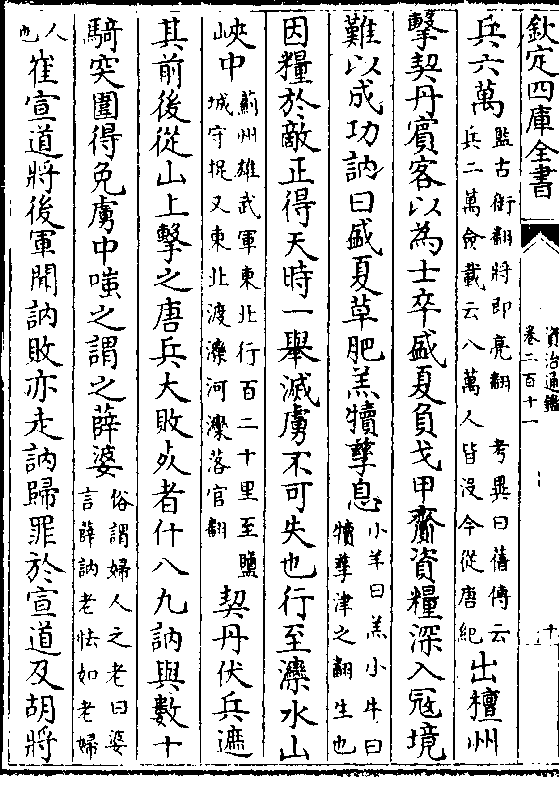 欽定四庫全書
資治通鑑
卷二百十一
十
兵六萬
監古銜翻將即亮翻 考異曰舊傳云
兵二萬僉載云八萬人皆沒今從唐紀
出檀州
擊契丹賓客以為士卒盛夏負戈甲齎資糧深入寇境
難以成功訥曰盛夏草肥羔犢孳息
小羊曰羔小牛曰
犢孳津之翻生也
因糧於敵正得天時一舉滅虜不可失也行至灤水山
峽中
薊州雄武軍東北行百二十里至鹽
城守捉又東北渡灤河灤落官翻
契丹伏兵遮
其前後從山上擊之唐兵大敗死者什八九訥與數十
騎突圍得免虜中嗤之謂之薛婆
俗謂婦人之老曰婆
言薛訥老怯如老婦
人
也
崔宣道將後軍聞訥敗亦走訥歸罪於宣道及胡將